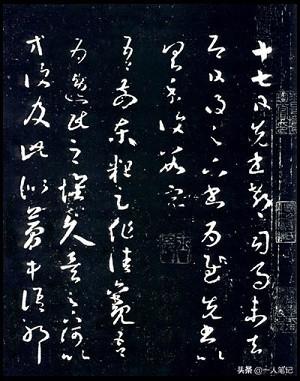 十七日先書郗司馬未去
即日得足下書為慰先書以
具示復數字
吾前東粗足作佳觀吾
為逸民之懷久矣足下何以
方復及此似夢中語耶
头条 @一人笔记